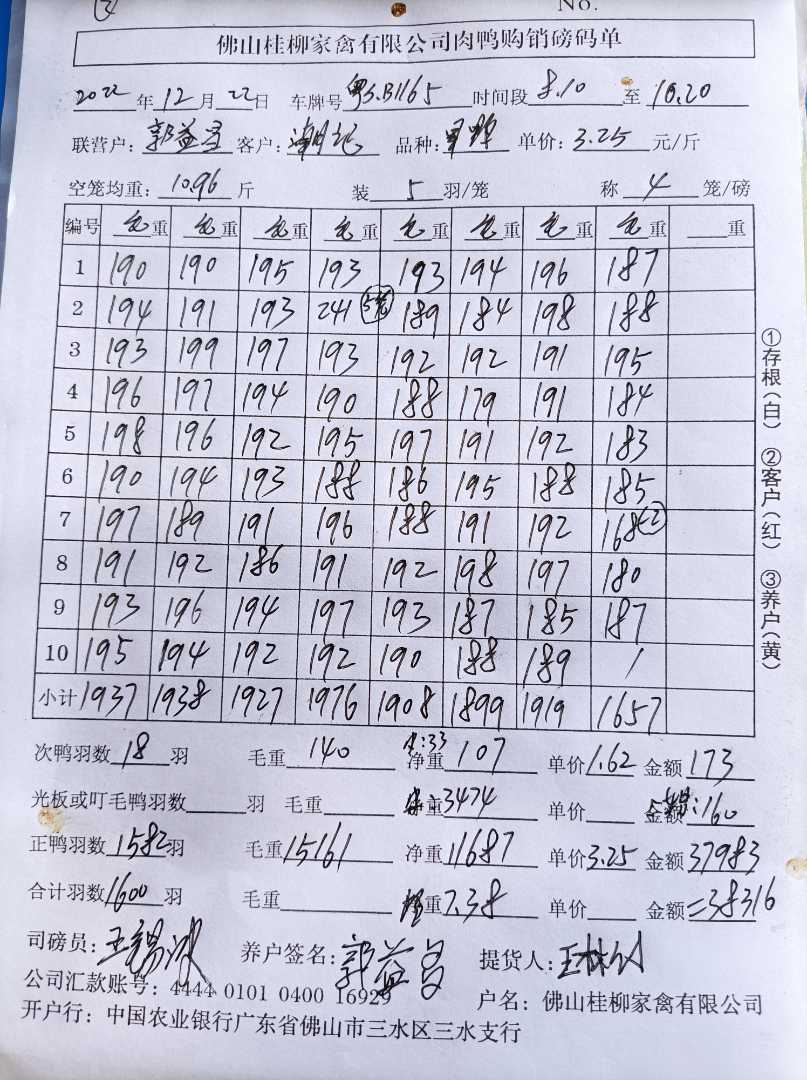 No.
佛山桂柳家禽有限公司肉鸭购销磅码单
2022 年 12 月 22 日 车牌号 粤S.B1165 时间段 8.10 至 10.20
联营户: 郭益昌 客户: 品种: 单价: 3.25 元/斤
空笼均重: 10.96 斤 装 5 羽/笼 称 4 笼/磅
编号 毛重 毛重 毛重 毛重 毛重 毛重 毛重 毛重 重
1 190 190 195 193 193 194 196 187
2 194 191 193 241 189 184 198 188
3 193 199 197 193 192 192 191 195
4 196 197 194 190 188 179 191 184
5 198 196 192 195 197 191 192 183
6 190 194 193 188 186 195 188 185
7 197 189 191 196 188 191 192 168
8 191 192 186 191 192 198 197 180
9 193 196 194 197 193 187 185 187
10 195 194 192 192 190 188 189 /
小计 1937 1938 1927 1976 1908 1899 1919 1657
①存根(白) ②客户(红) ③养户(黄)
次鸭羽数 18 羽 毛重 140 净重 107 单价 1.62 金额 173
光板或叮毛鸭羽数 羽 毛重 重 3474 单价 金额 160
正鸭羽数 1582 羽 毛重 15161 净重 11687 单价 3.25 金额 37983
合计羽数 1600 羽 毛重 重 7.38 单价 金额 38316
司磅员: 养户签名: 郭益昌 提货人:
公司汇款账号: 4444 0101 0400 16929 户名: 佛山桂柳家禽有限公司
开户行: 中国农业银行广东省佛山市三水区三水支行